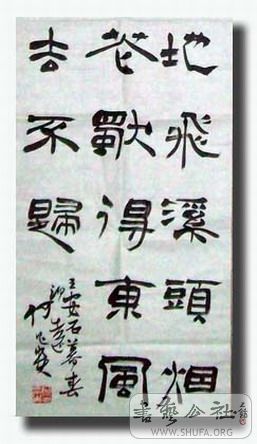 地飛溪頭烟
花獨得東風
去不歸
王安石暮春
何
書藝公社
WWW.SHUFA.ORG